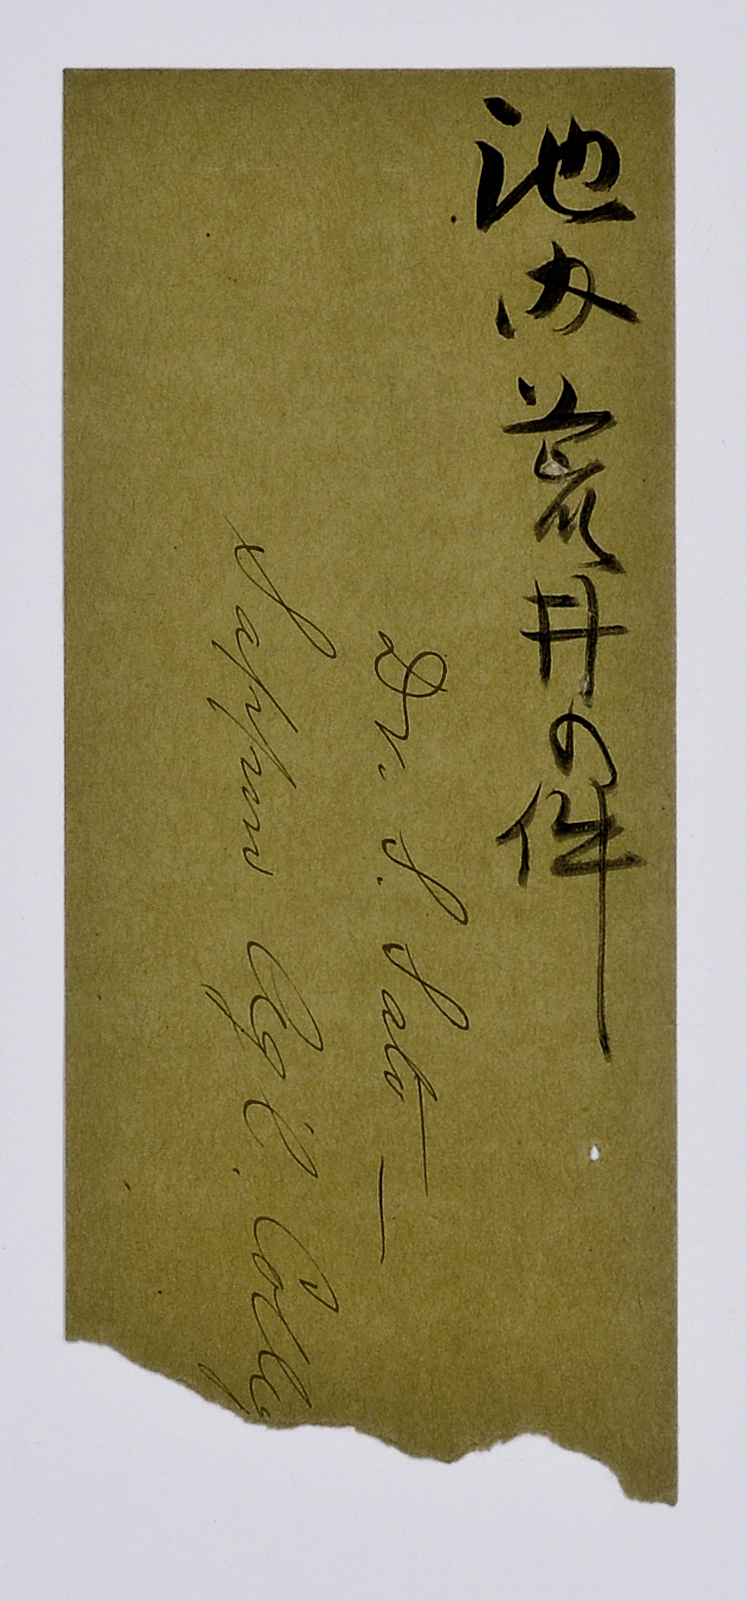 池内荒井の件
Dr. S. Sato —
Sapporo Agl. Colleg